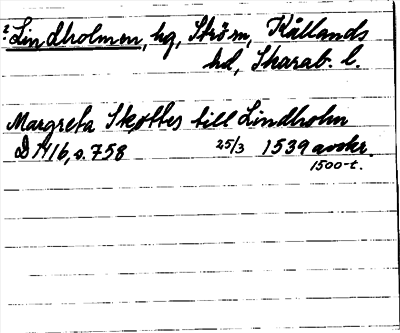 ? Lindholmen, hg, Ström, Kållands
hd, Skarab. l.
Margreta Skottes till Lindholm
D A 16, s. 758 25/3 1539 avskr.
1500-t.